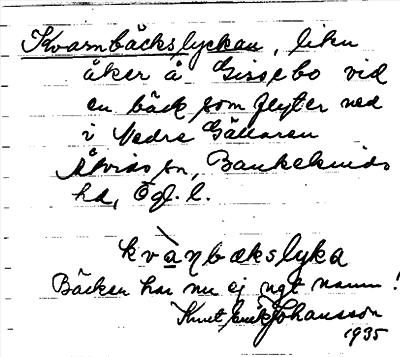 Kvarnbäckslyckan, liten
åker å Gissebo vid
en bäck som flyter ned
i Nedre Gällaren
Åtvids sn, Bankekinds
hd, Ög. l.
kvàɳbækslyka
Bäcken har nu ej ngt namn!
Knut Erik Johansson
1935